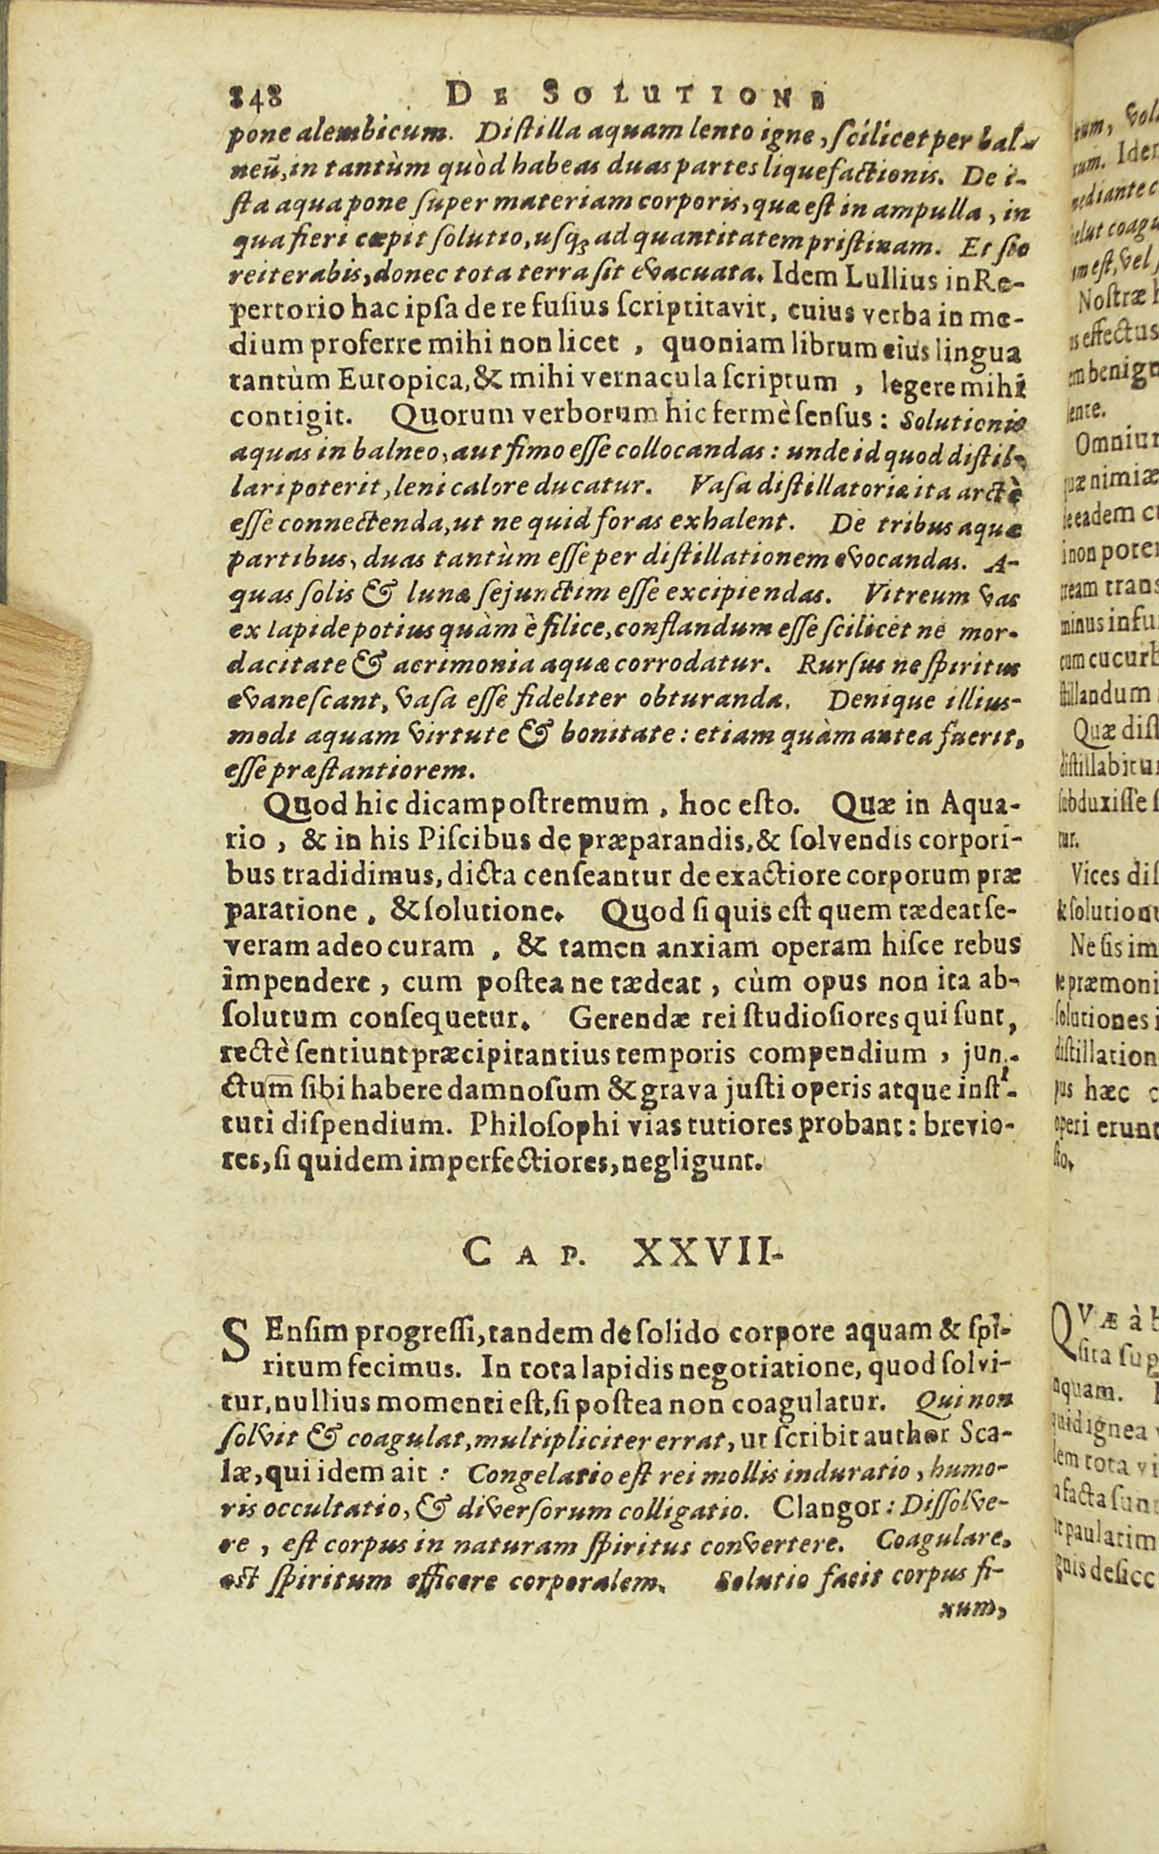 248 DE SOLUTIONE
pone alembicum. Distilla aquam lento igne, scilicet per bal-
neũ, in tantùm quòd habeas duas partes liquefactionis. De i-
sta aqua pone super materiam corporis, quæ est in ampulla, in
qua fieri cœpit solutio, usq; ad quantitatem pristinam. Et sic
reiterabis, donec tota terra sit evacuata. Idem Lullius in Re-
pertorio hac ipsa de re fusius scriptitavit, cuius verba in me-
dium proferre mihi non licet, quoniam librum eius lingua
tantùm Europica, & mihi vernacula scriptum, legere mihi
contigit. Quorum verborum hic fermè sensus: Solutionis
aquas in balneo, aut fimo esse collocandas: unde id quod distil-
lari poterit, leni calore ducatur. Vasa distillatoria ita arctè
esse connectenda, ut ne quid foras exhalent. De tribus aquæ
partibus, duas tantùm esse per distillationem evocandas. A-
quas solis & lunæ sejunctim esse excipiendas. Vitreum vas
ex lapide potius quàm è filice, conflandum esse scilicet ne mor-
dacitate & acrimonia aquæ corrodatur. Rursus ne spiritus
evanescant, vasa esse fideliter obturanda. Denique illius-
modi aquam virtute & bonitate: etiam quàm antea fuerit,
esse præstantiorem.
Quod hic dicam postremum, hoc esto. Quæ in Aqua-
rio, & in his Piscibus de præparandis, & solvendis corpori-
bus tradidimus, dicta censeantur de exactiore corporum præ
paratione, & solutione. Quod si quis est quem tædeat se-
veram adeo curam, & tamen anxiam operam hisce rebus
impendere, cum postea ne tædeat, cùm opus non ita ab-
solutum consequetur. Gerendæ rei studiosiores qui sunt,
rectè sentiunt præcipitantius temporis compendium, jun-
ctum sibi habere damnosum & grava justi operis atque insti-
tuti dispendium. Philosophi vias tutiores probant: brevio-
res, si quidem imperfectiores, negligunt.
CAP. XXVII-
SEnsim progressi, tandem de solido corpore aquam & spi-
ritum fecimus. In tota lapidis negotiatione, quod solvi-
tur, nullius momenti est, si postea non coagulatur. Qui non
solvit & coagulat, multipliciter errat, ut scribit author Sca-
læ, qui idem ait: Congelatio est rei mollis induratio, humo-
ris occultatio, & diversorum colligatio. Clangor: Dissolve-
re, est corpus in naturam spiritus convertere. Coagulare,
est spiritum efficere corporalem. Solutio facit corpus fi-
xum,